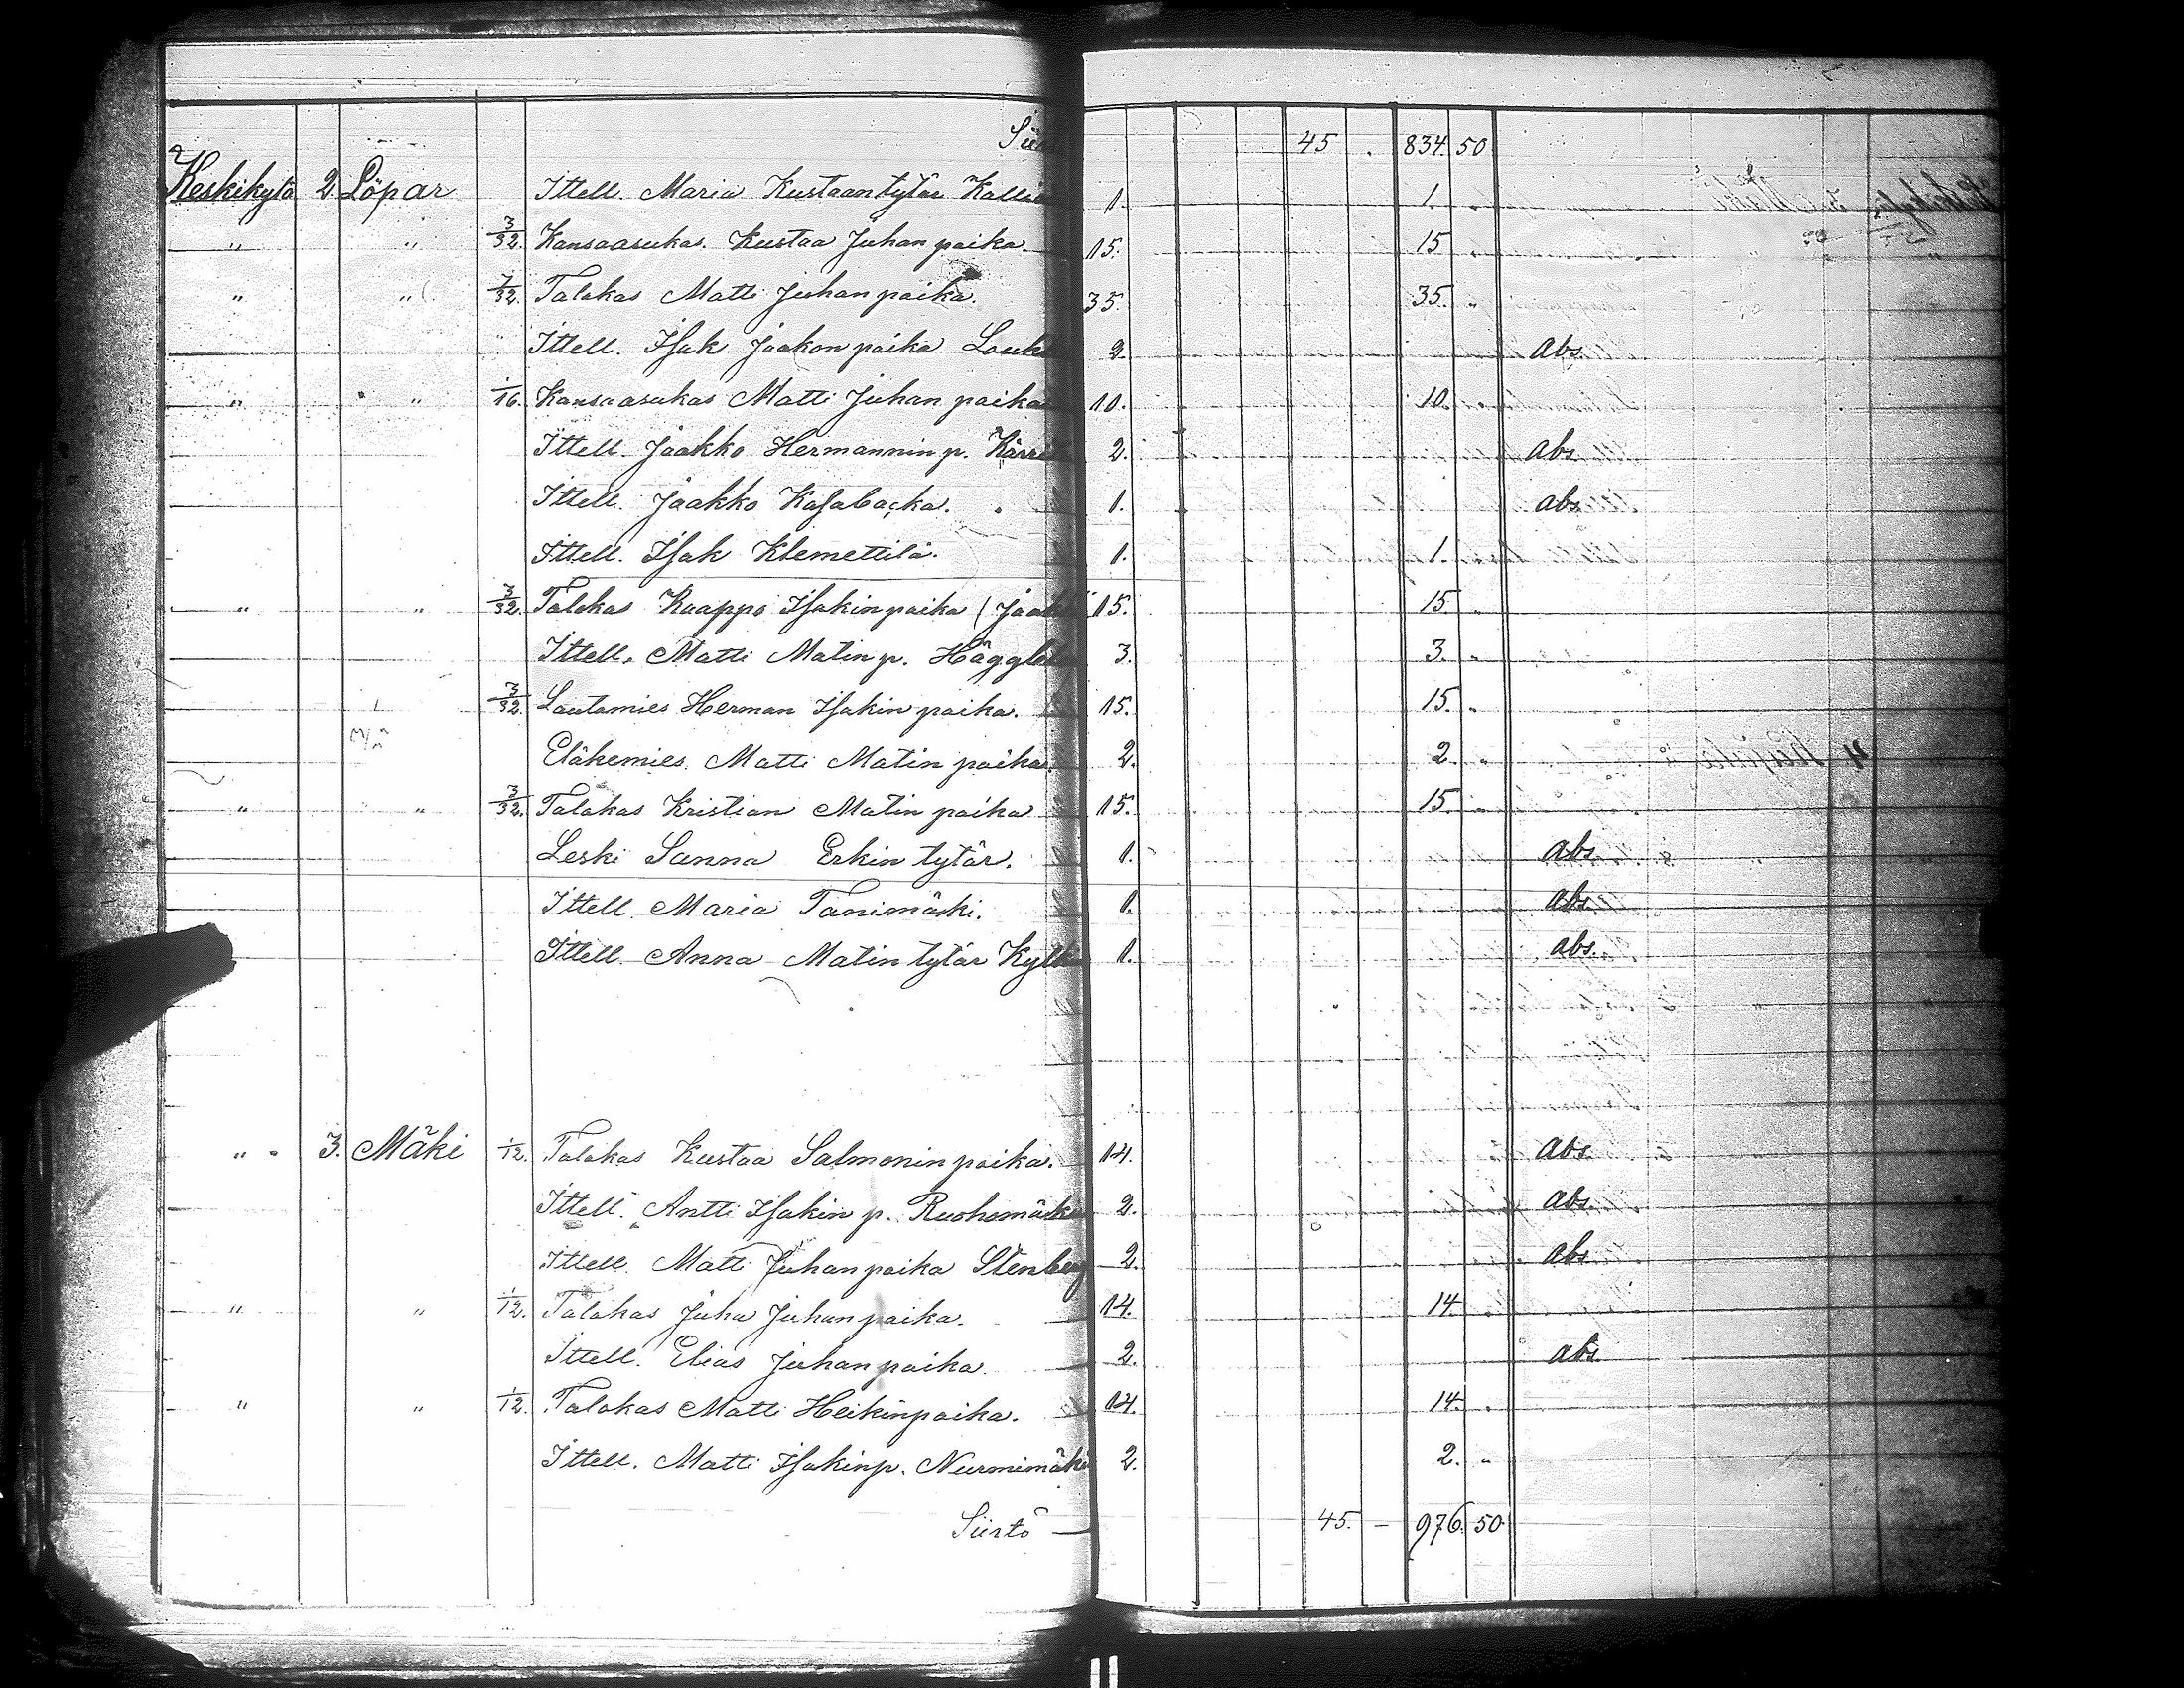 45 . 834. 50
Keskikylä 2. Löpar Ittell. Maria Kustaantytär 1. 1. "
" " 3/32. Kansaasukas. Kustaa Juhanpoika. 15. 15 "
" " 7/32. Talokas Matti Juhanpoika. 35. 35. "
Ittell. Isak Jaakonpoika 2. abs.
" " 1/16. Kansaasukas Matti Juhanpoika 10. 10. "
Ittell. Jaakko Hermannin p. 2. abs.
Ittell. Jaakko Kasabacka. 1. abs.
Ittell. Isak Klemettilä. 1. 1. "
" " 3/32. Talokas Kaappo Isakinpoika 15. 15. "
Ittell. Matti Matin p. 3. 3. "
3/32. Lautamies Herman Isakinpoika. 15. 15. "
Eläkemies. Matti Matinpoika. 2. 2. "
" " 3/32. Talokas Kristian Matinpoika 15. 15. "
Leski Sanna Erkintytär. 1. abs.
Ittell. Maria Tanimäki. 1. abs.
Ittell. Anna Matintytär 1. abs.
" 3. Mäki 1/12. Talokas Kustaa Salmoninpoika. 14. abs.
Ittell. Antti Isakin p. Ruohomäki 2. abs.
Ittell. Matti Juhanpoika Stenberg 2. abs.
" " 1/12. Talokas Juha Juhanpoika. 14. 14. "
Ittell. Elias Juhanpoika. 2. abs.
" " 1/12. Talokas Matti Heikinpoika. 14. 14. "
Ittell. Matti Isakinp. Nurmimäki 2. 2. "
Siirto — 45. — 976. 50.